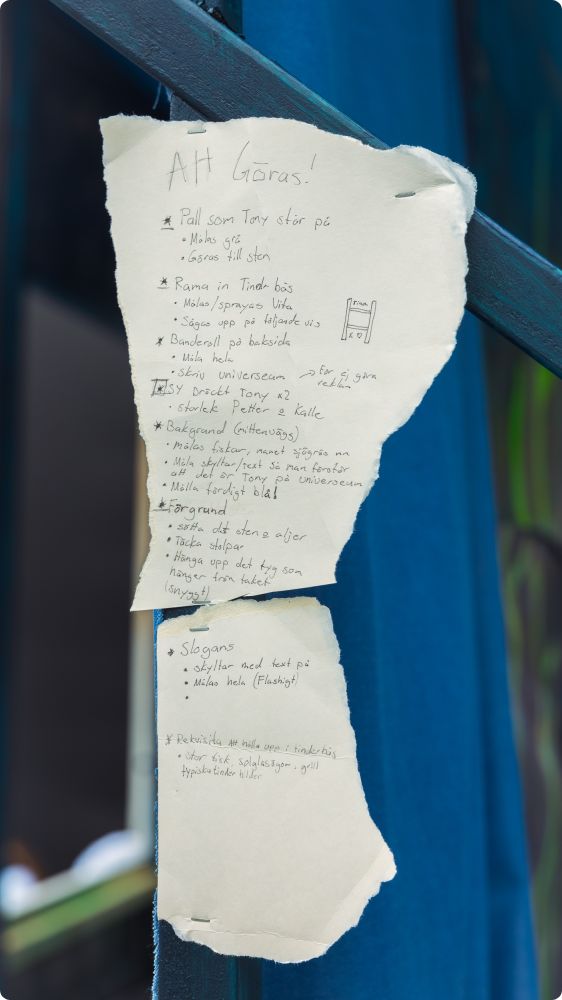 Att Göras!
* Pall som Tony står på
• Målas grå
• Göras till sten
* Rama in Tinderbås
• Målas/sprayas Vita
• Sågas upp på följande vis
* Banderoll på baksida
• Måla hela
• skriv universeum → för ej göra
reklam
* SY Dräckt Tony x2
• storlek Petter o Kalle
* Bakgrund (mittenvägg)
• målas fiskar, manet sjögräs mn
• Måla skyltar/text så man förstår
att det är Tony på universeum
• Målla färdigt blå!
* Förgrund
• sätta dit sten o aljer
• Täcka stolpar
• Hänga upp det tyg som
hänger från taket
(snyggt)
* Slogans
• skyltar med text på
• Målas hela (Flashigt)
•
* Rekvisida Att hålla upp i tinderbås
• stor fisk, solglasögon, grill
typiska tinder bilder